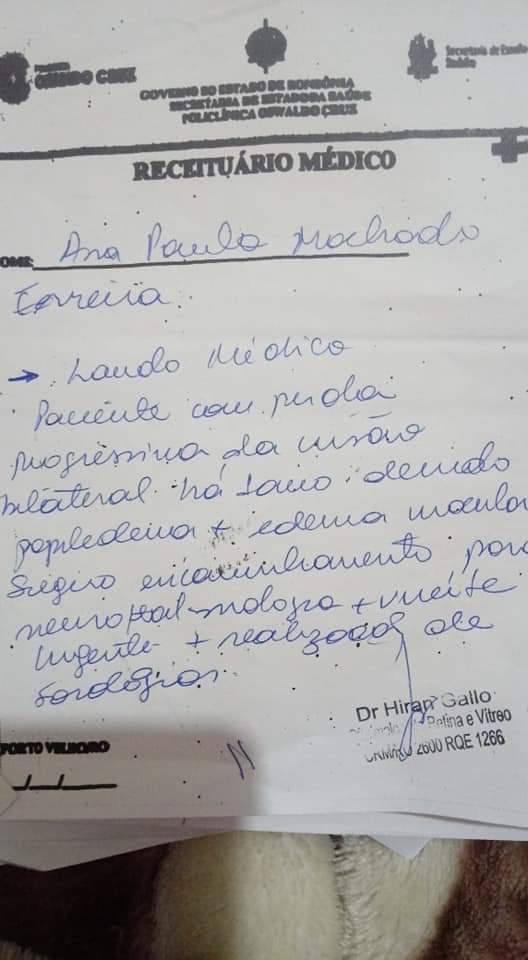 OSWALDO CRUZ
GOVERNO DO ESTADO DE RONDÔNIA
SECRETARIA DE ESTADO DA SAÚDE
POLICLÍNICA OSWALDO CRUZ
Secretaria de Estado
RECEITUÁRIO MÉDICO
OME: Ana Paula Machado
Ferreira
→ Laudo Médico
Paciente com perda
progressiva da visão
bilateral há 1 ano devido
papiledema + edema macular
Sugiro encaminhamento para
neuroftalmologia
urgente + realizada de
Dr Hiran Gallo
Retina e Vítreo
2600 RQE 1266
PORTO VELHO/RO